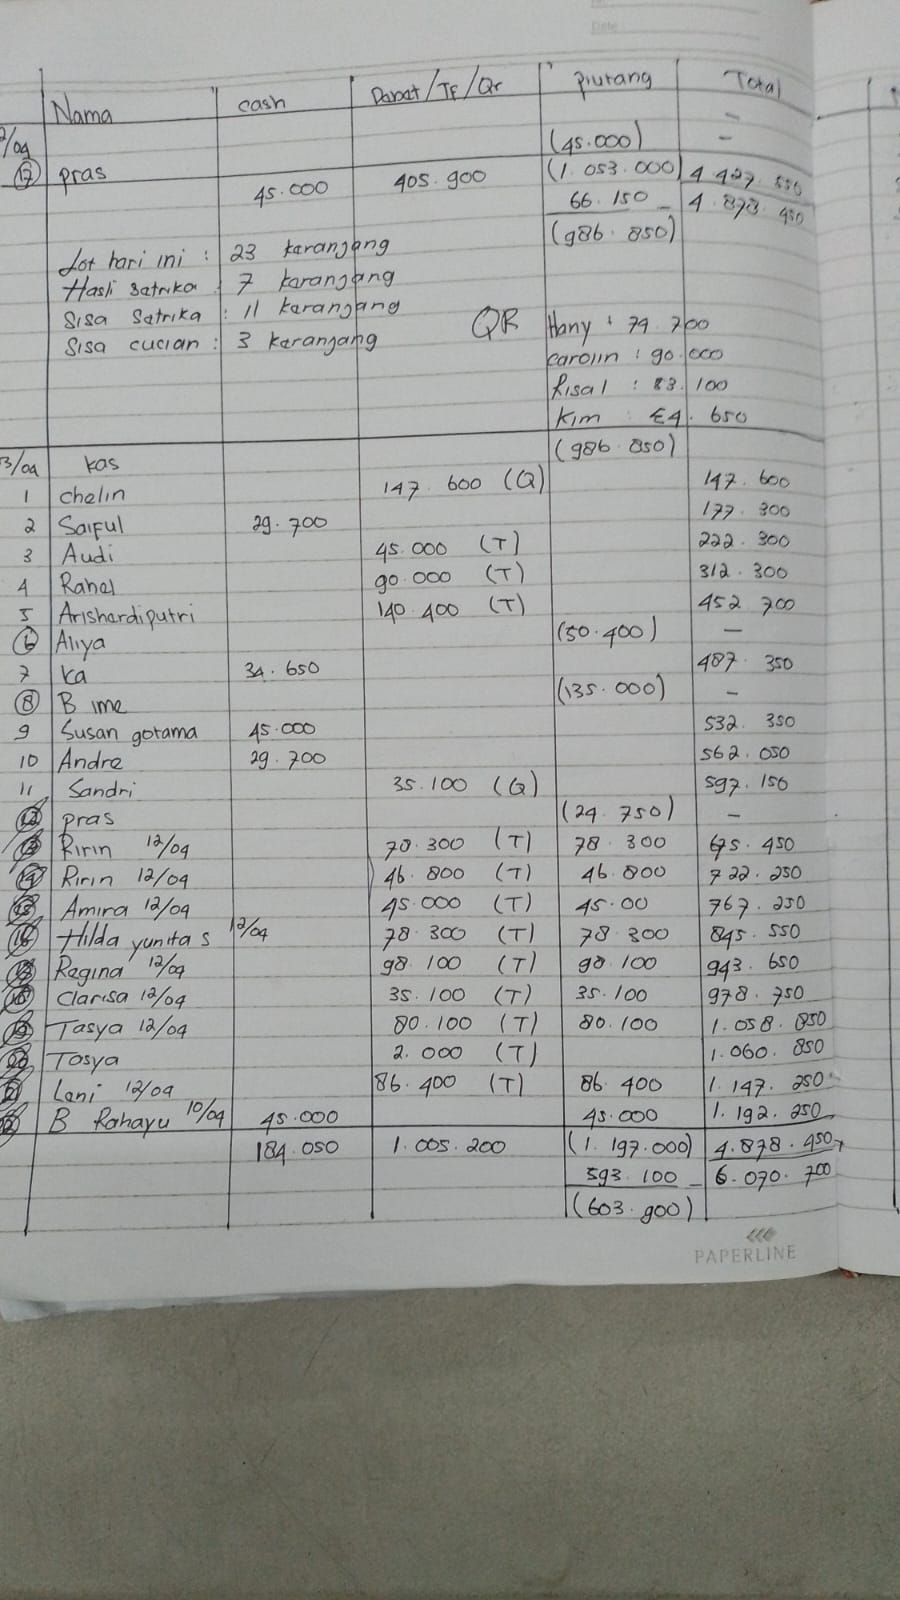 Date
Nama cash Dabat/TF/Qr piutang Total
2/04 (45.000) -
pras 45.000 405.900 (1.053.000) 4.427.550
66.150 - 4.878.450
(986.850)
Jot hari ini : 23 karangjang
Hasli satrika : 7 karangjang
Sisa Satrika : 11 karangjang
Sisa cucian : 3 karangjang
QR Hany : 79.700
carolin : 90.000
Risal : 83.100
Kim : 54.650
3/04 kas (986.850)
1 chelin 147.600 (Q) 147.600
2 Saiful 29.700 177.300
3 Audi 45.000 (T) 222.300
4 Rahel 90.000 (T) 312.300
5 Arishardiputri 140.400 (T) 452.700
6 Aliya (50.400) -
7 ka 34.650 487.350
8 B ime (135.000) -
9 Susan gotama 45.000 532.350
10 Andre 29.700 562.050
11 Sandri 35.100 (Q) 597.150
12 pras (24.750) -
13 Ririn 12/04 78.300 (T) 78.300 675.450
14 Ririn 12/04 46.800 (T) 46.800 722.250
15 Amira 12/04 45.000 (T) 45.00 767.250
16 Hilda yunita s 12/04 78.300 (T) 78.300 845.550
17 Regina 12/04 98.100 (T) 98.100 943.650
18 Clarisa 12/04 35.100 (T) 35.100 978.750
19 Tasya 12/04 80.100 (T) 80.100 1.058.850
20 Tasya 2.000 (T) 1.060.850
21 Lani 12/04 86.400 (T) 86.400 1.147.250
22 B Rahayu 10/04 45.000 45.000 1.192.250
184.050 1.005.200 (1.197.000) 4.878.450
593.100 - 6.070.700
(603.900)
PAPERLINE